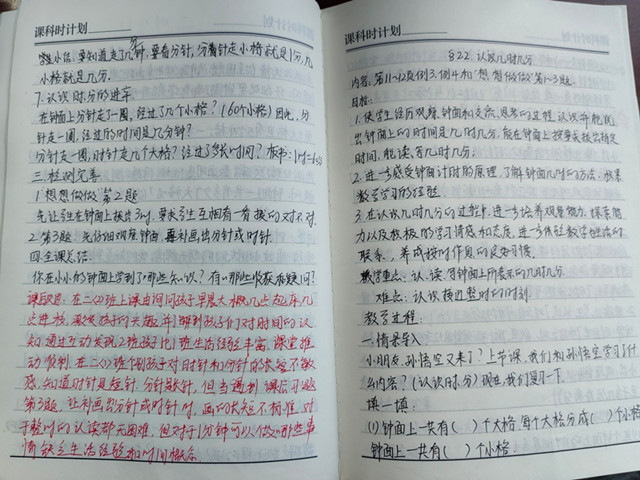 课科时计划
小结:要知道走了几分钟,要看分针,分针走小格就是1分,几
小格就是几分。
7.认识时、分的进率
在钟面上分针走了一圈,经过了几个小格?(60个小格)因此,分
针走一圈,经过的时间是几分钟?
分针走一圈,时针走几个大格?经过了多长时间?板书:1时=60分
三.检测完善
1.想想做做第2题
先让学生在钟面上拨出3时,要求学生互相看一看拨的对不对.
2.第3题,先仔细观察钟面,再补画出分针或时针.
四.全课总结:
你在小小的钟面上学到了哪些知识?有哪些收获和疑问?
课后反思:在二(1)班上课由询问孩子早晨大概几点起床,几
点进校,激发孩子的兴趣并了解到孩子们对时间的认
知,通过互动发现2班孩子比1班生活经验丰富,课堂推
动顺利.在二(1)班个别孩子对时针和分针的长短不敏
感,知道时针是短针,分针是长针,但当遇到课后习题
第3题,让补画出分针或时针时,画的长短不标准.对
于整时的认读都无困难,但对于1分钟可以做哪些事
情缺乏生活经验和时间概念
课科时计划
§22.认识几时几分
内容:第11~12页例3、例4和“想想做做”第1~3题.
目标:
1.使学生经历观察钟面和交流、思考的过程,认识并能说
出钟面上的时间是几时几分,能在钟面上按要求拨出指定
时间,能读、写几时几分.
2.进一步感受钟面计时的原理,了解钟面几时几分的方法,积累
数学学习的经验.
3.在认识几时几分的过程中,进一步培养观察能力、探究能
力以及积极的学习情感和态度,进一步体验数学与生活的
联系,养成按时作息的良好习惯.
教学重点:认、读、写钟面上所表示的几时几分.
难点:认识接近整时的时刻.
教学过程:
一.情景导入
小朋友,孙悟空又来了?上节课,我们和孙悟空学习了什
么内容?(认识时、分)现在,我们复习一下.
填一填:
(1)钟面上一共有( )个大格,每个大格分成( )个小格,
钟面上一共有( )个小格